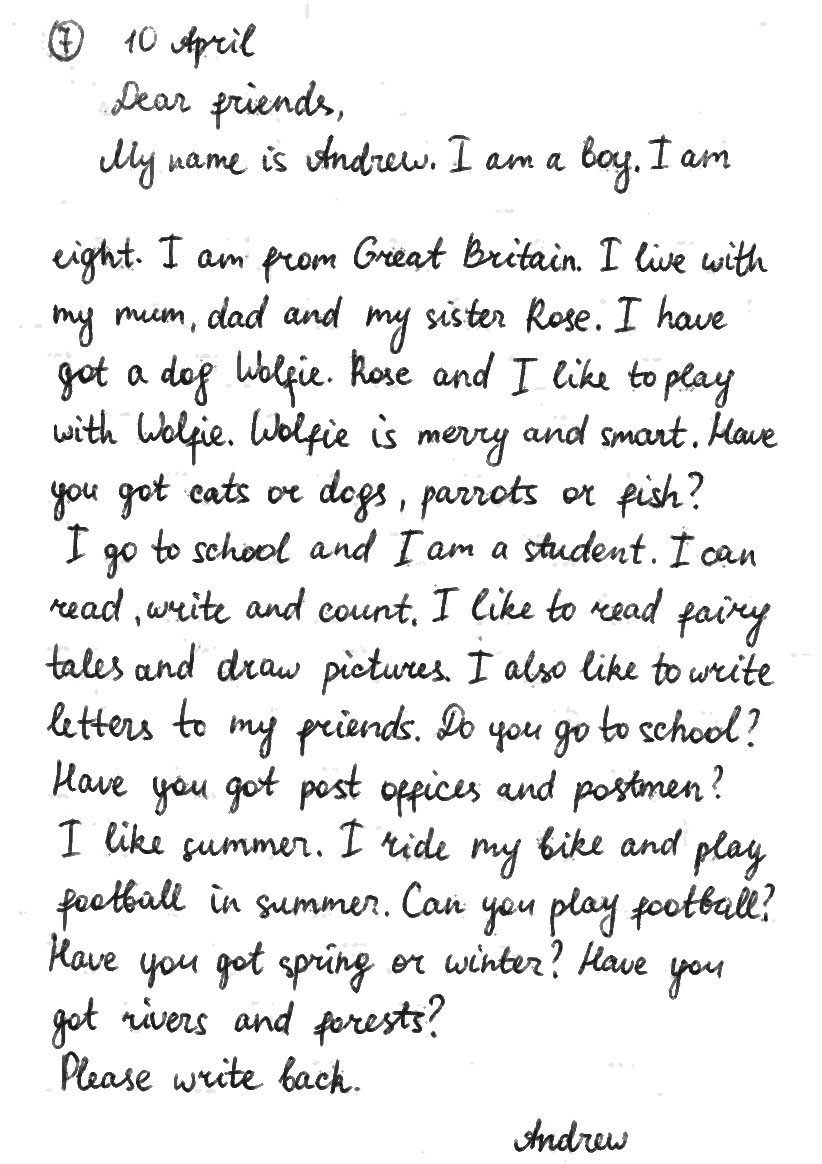 7 10 April
Dear friends,
My name is Andrew. I am a boy. I am
eight. I am from Great Britain. I live with
my mum, dad and my sister Rose. I have
got a dog Wolfie. Rose and I like to play
with Wolfie. Wolfie is merry and smart. Have
you got cats or dogs, parrots or fish?
I go to school and I am a student. I can
read, write and count. I like to read fairy
tales and draw pictures. I also like to write
letters to my friends. Do you go to school?
Have you got post offices and postmen?
I like summer. I ride my bike and play
football in summer. Can you play football?
Have you got spring or winter? Have you
got rivers and forests?
Please write back.
Andrew